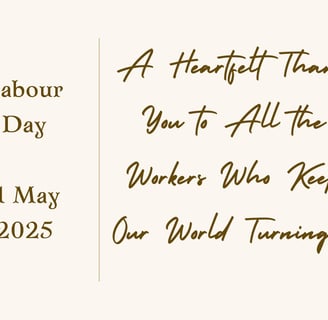 abour
Day
1 May
2025
A Heartfelt Than
You to All the
Workers Who Keep
Our World Turning